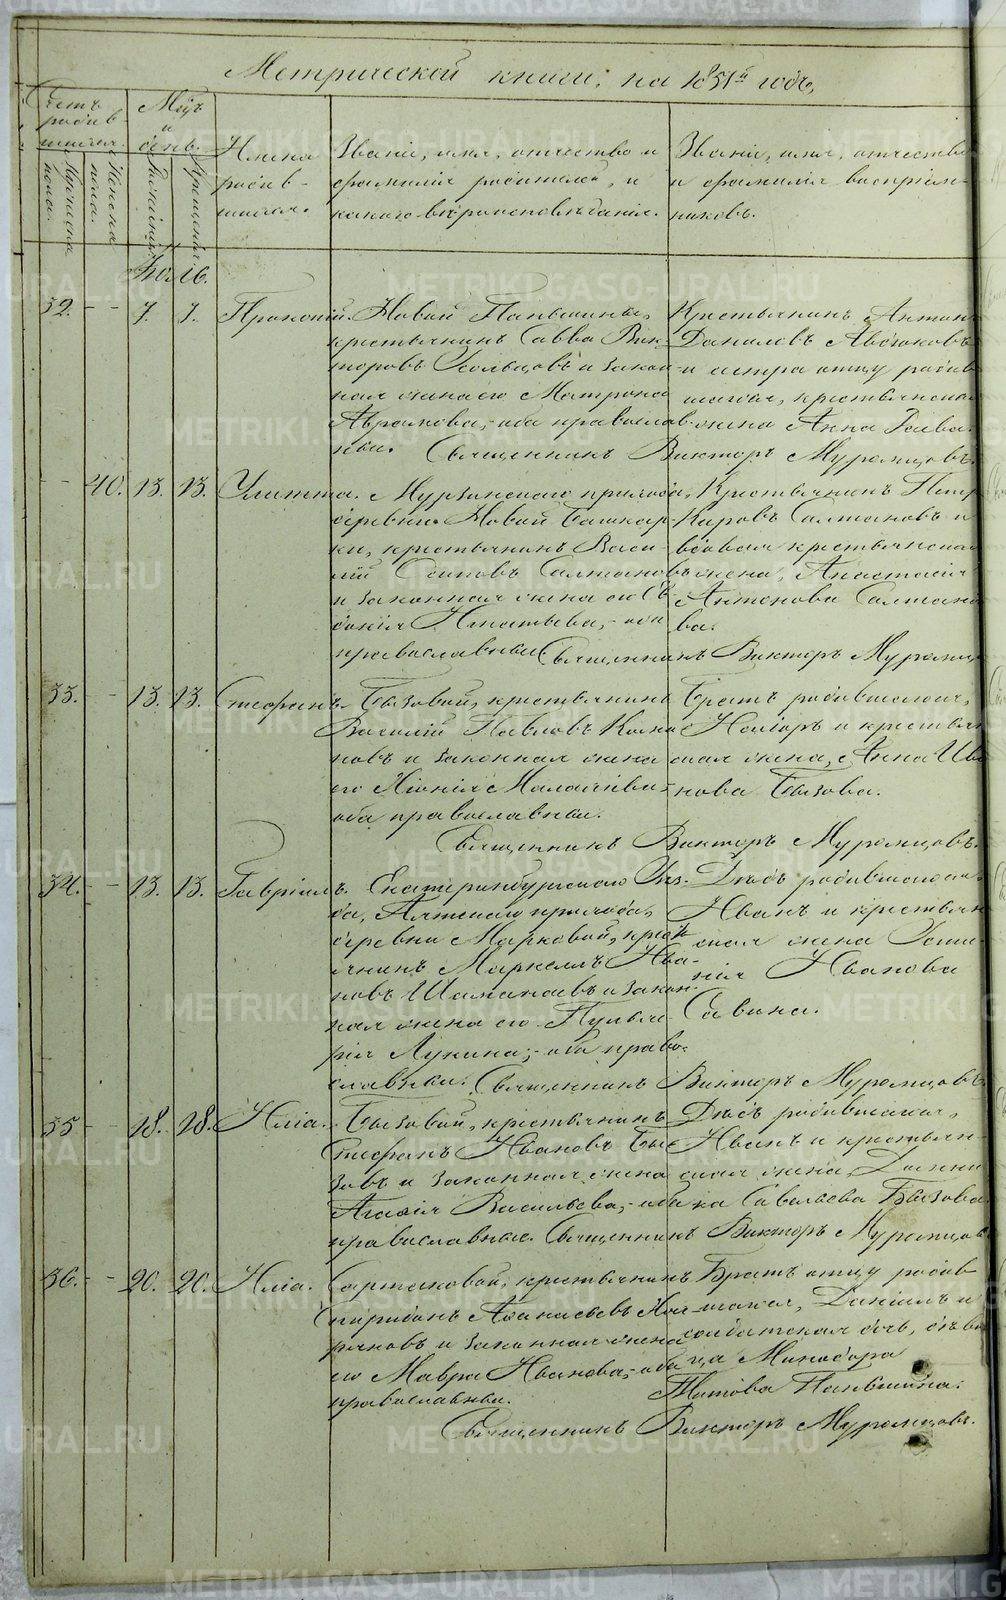 Метрической книги, на 1851й годъ,
Счетъ родив-шихся.
Мужеска пола.
Женска пола.
Мѣсц и день.
Рожденія
Крещенія
Имена родив-шихся.
Званіе, имя, отчество и
фамилія родителей, и
какого вѣроисповѣданія.
Званіе, имя, отчество
и фамилія воспріем-
никовъ.
Іюль.
32. - - 7. 7. Прокопій. Новой Паньшины,
крестьянинъ Савва Вик-
торовъ Усольцовъ и закон-
ная жена его Матрона
Аврамова, - оба православ-
ныи.
Крестьянинъ Антон
Даниловъ Авдюковъ
и сестра отцу родив
шагося, крестьянская
жена Анна
Священникъ Викторъ Муромцовъ.
- - 40. 13. 13. Улитта. Мурзинского прихода,
деревни Новой Башкар-
ки, крестьянинъ Васи-
лій Осиповъ Салтановъ
и законная жена его Ев-
докія Игнатьева, - оба
православныи
Крестьянинъ Петр
Карповъ Салтановъ и
вдовая крестьянская
жена, Анастасія
Антонова Салтано
ва.
Священникъ Викторъ Муромцо
33. - - 13. 13. Стефанъ. Бызовой, крестьянинъ
Василій Павловъ
новъ и законная жена
его Ксенія Малахіева -
оба православныи.
Братъ родившагося,
и крестьян
ская жена, Анна Ива
нова Бызова.
Священникъ Викторъ Муромцовъ.
34. - - 13. 13. Гавріилъ. Екатеринбургскаго Уѣз-
да, прихода,
деревни Марковой, крест
янинъ Маркеллъ Ива-
новъ Шаманаевъ и закон-
ная жена его Пульхе-
рія Лукина, - оба право-
славныи.
Дѣдъ родившагося,
Иванъ и крестьян
ская жена Усти-
нія Иванова
Савина.
Священникъ Викторъ Муромцовъ
35 - - 18. 18. Илія. Бызовой, крестьянинъ
Стефанъ Ивановъ Бы-
зовъ и законная жена
Агафія Васильева, - оба
православныи.
Дѣдъ родившагося,
Иванъ и крестьян-
ская жена, Домни
ка Савельева Бызова.
Священникъ Викторъ Муромцов
36. - - 20. 20. Илія. Сартаковой, крестьянинъ
Спиридонъ Афанасьевъ
ряковъ и законная жена
его Мавра Иванова, - оба
православныи.
Братъ отцу родив
шагося, Даніилъ и
солдатская дочь, дѣви
ца Минодора
Титова Паньшина.
Священникъ Викторъ Муромцовъ.
METRIKI.GASO-URAL.RU